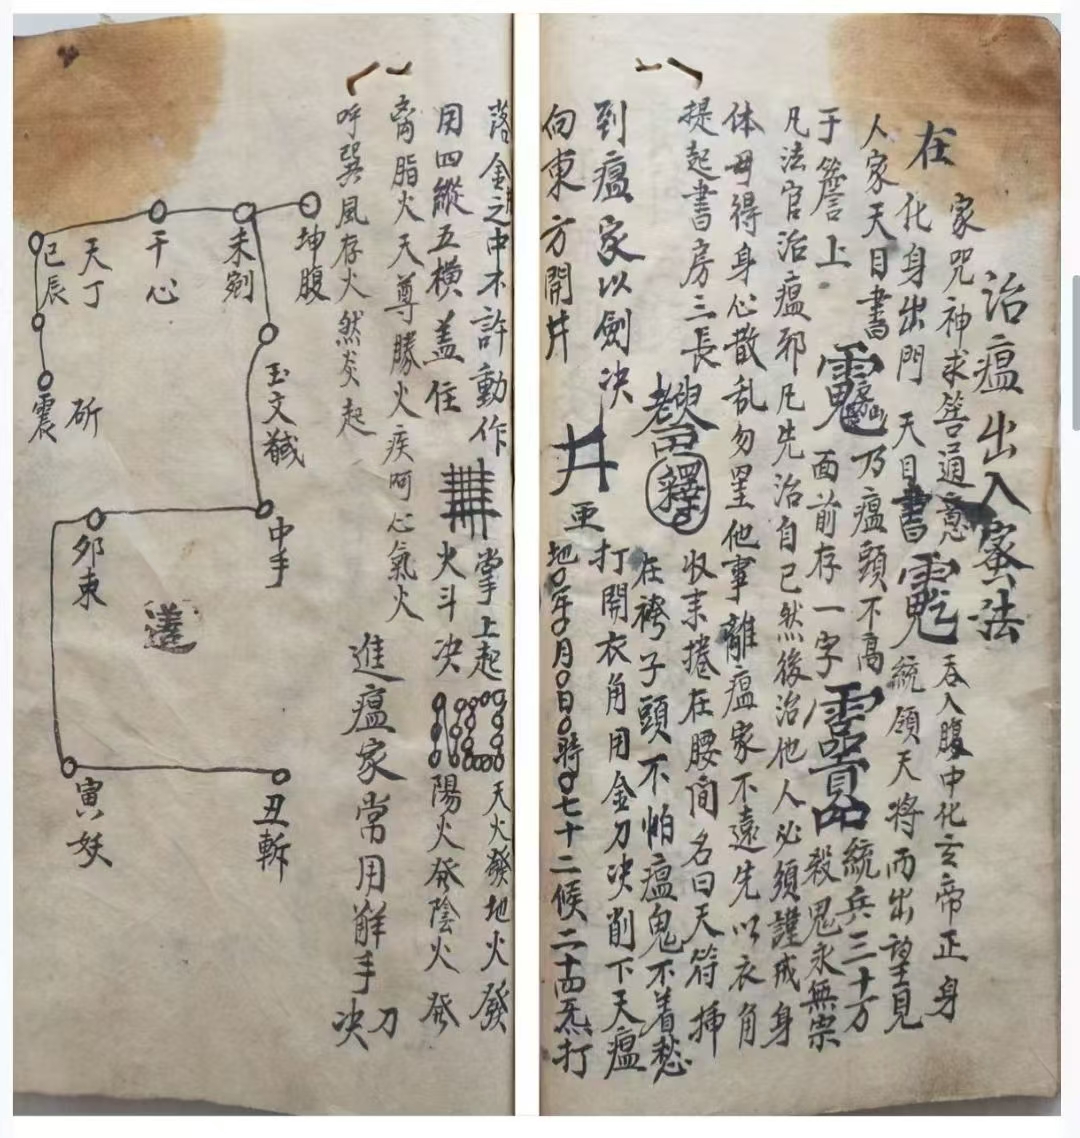 治瘟出入蜜法
在家咒神求筶通意吞入腹中化玄帝正身
化身出門天目書統領天将而出望見
人家天目書乃瘟頭不高統兵三十万
于簷上面前存一字殺鬼永無祟
凡法官治瘟邪凡先治自己然後治他人必須謹戒身
体毋得身心散乱勿罣他事離瘟家不遠先以衣角
提起書房三長收来捲在腰间名曰天符揷
在袴子頭不怕瘟鬼不着愁
到瘟家以劍决打開衣角用金刀决削下天瘟
向東方開井井亜地〇年〇月〇日〇時〇七十二候二十四炁打
落金井之中不許動作掌上起天火發地火發
用四縱五橫盖住火斗决陽火発陰火発
离脂火天尊勝火疾呵心氣火
呼巽風存火然炎起
進瘟家常用觧手刀决
坤腹
未剜
干心
天丁
巳辰
震斫
玉文
中手
夘束
寅妖
丑斬